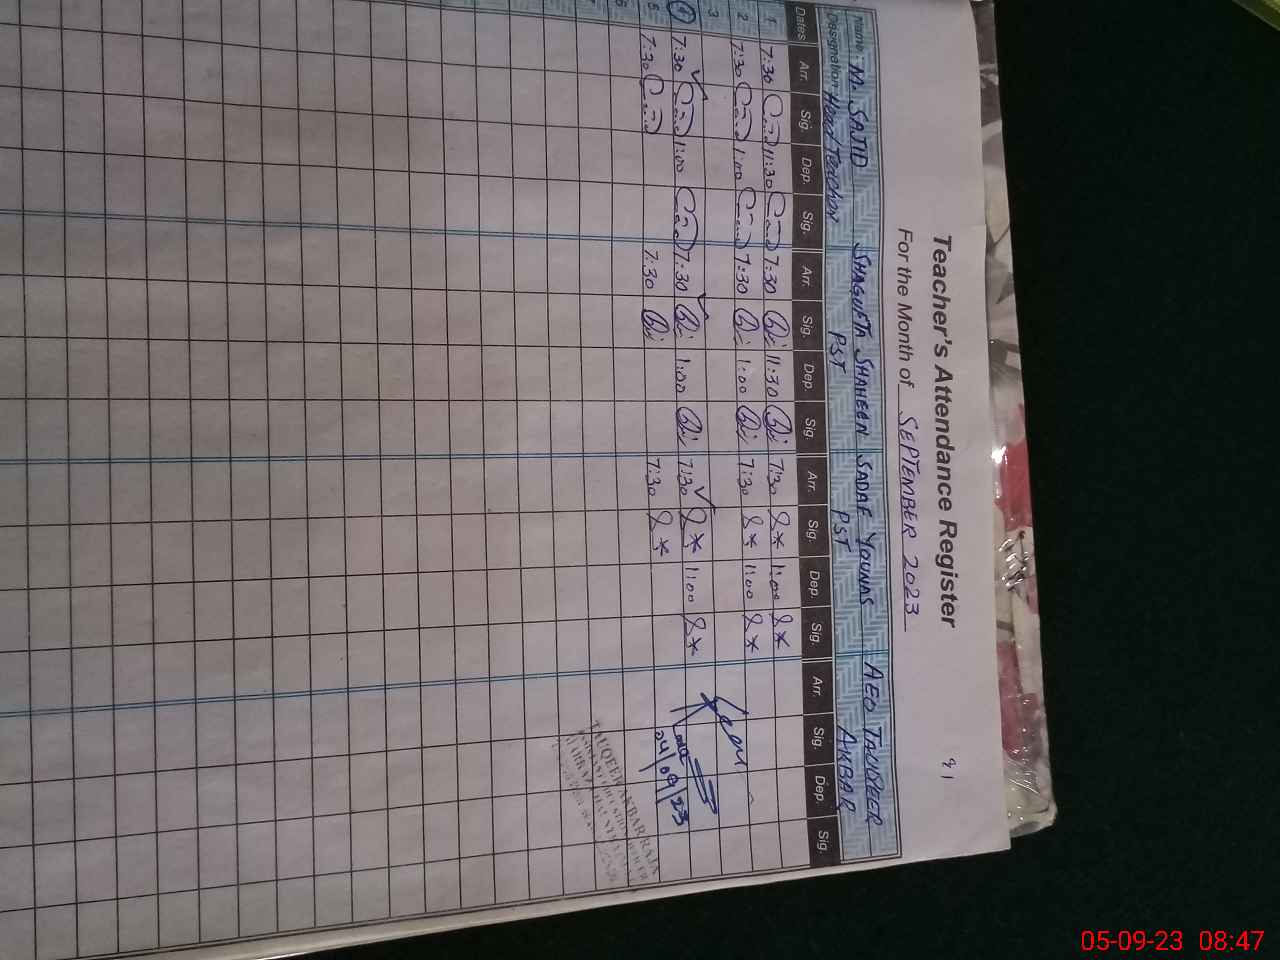 Teacher's Attendance Register
91
For the Month of SEPTEMBER 2023
Name: M. SAJID SHAGUFTA SHAHEEN SADAF YOUNAS AEO TAUQEER
Designation: Head Teacher PST PST AKBAR
Dates Arr. Sig. Dep. Sig. Arr. Sig. Dep. Sig. Arr. Sig. Dep. Sig. Arr. Sig. Dep. Sig.
1 7:30 11:30 7:30 11:30 7:30 1:00
2 7:30 1:00 7:30 1:00 7:30 1:00
3
4 7:30 1:00 7:30 1:00 7:30 1:00
5 7:30 7:30 7:30
6
7
04/09/23
TAUQEER AKBAR RAJA
05-09-23 08:47